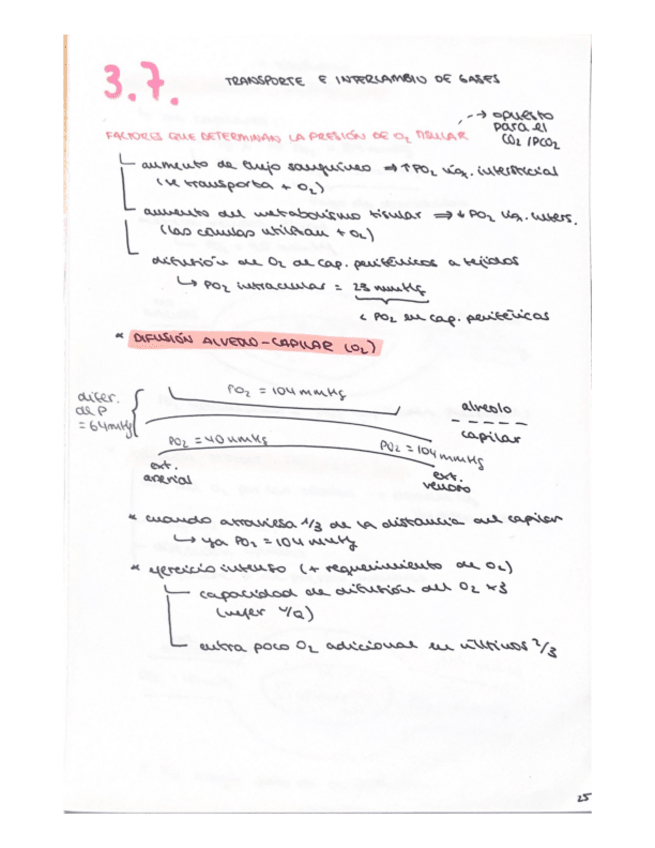 3.7.
TRANSPORTE E INTERCAMBIO DE GASES
FACTORES QUE DETERMINAN LA PRESIÓN DE O₂ TISULAR --→ opuesto
para el
CO₂ / PCO₂
aumento de flujo sanguíneo ⇒ ↑PO₂ líq. intersticial
(se transporta + O₂)
aumento del metabolismo tisular ⇒ ↓ PO₂ líq. inters.
(las células utilizan + O₂)
difusión de O₂ de cap. periféricos a tejidos
↳ PO₂ intracelular = 23 mmHg
< PO₂ en cap. periféricos
* DIFUSIÓN ALVEOLO-CAPILAR (O₂)
difer.
de P
= 64mmHg
PO₂ = 104 mmHg
alveolo
capilar
PO₂ = 40 mmHg
PO₂ = 104 mmHg
ext.
arterial
ext.
venoso
* cuando atraviesa 1/3 de la distancia del capilar
↳ ya PO₂ = 104 mmHg
* ejercicio intenso (+ requerimiento de O₂)
capacidad de difusión del O₂ x3
(mejor V/Q)
entra poco O₂ adicional en últimos 2/3
25